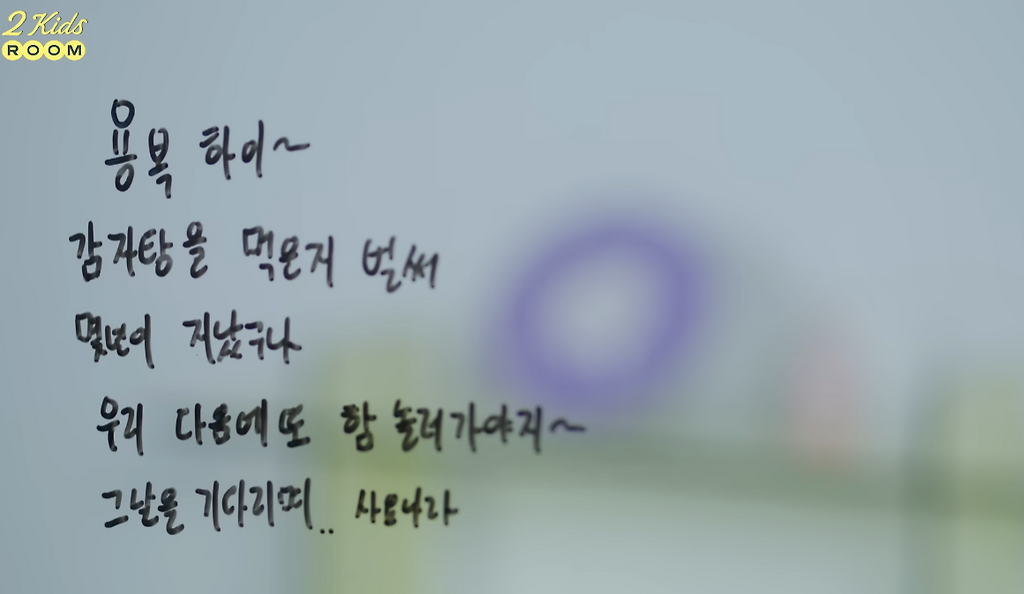 2 Kids
ROOM
용복 하이~
감자탕을 먹은지 벌써
몇년이 지났구나
우리 다음에 또 함 놀러가야지~
그날을 기다리며.. 사요나라